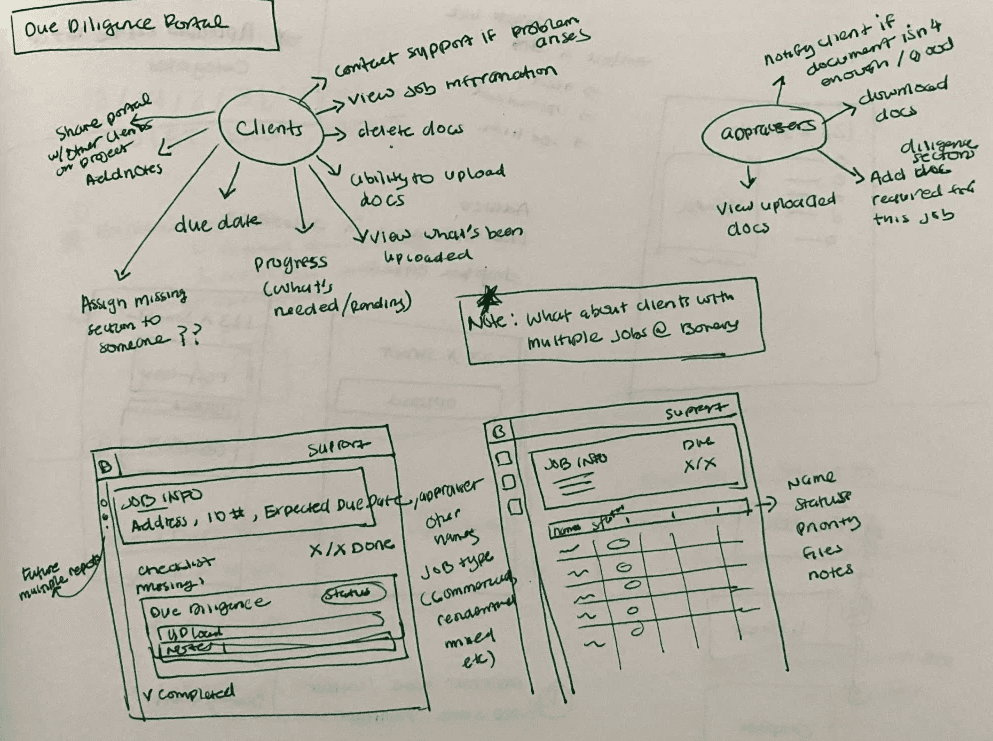 Due Diligence Portal
Clients
contact support if problem
arises
view job information
delete docs
ability to upload
docs
view what's been
uploaded
progress
(what's
needed/pending)
due date
Assign missing
section to
someone ??
Add notes
Share portal
w/other clients
on project
appraisers
notify client if
document isn't
enough / good
download
docs
diligence
sections
Add doc
required for
this job
view uploaded
docs
Note: What about clients with
multiple jobs @
B
Support
JOB INFO
Address, ID #, Expected Due Date, appraiser
other
names
JOB type
(commercial,
residential
mixed
etc)
X/X DONE
checklist
missing:
Due Diligence
Status
upload
notes
✓ Completed
Future
multiple reports
B
Support
JOB INFO
Due
X/X
Names
Status
Name
Status
priority
files
notes